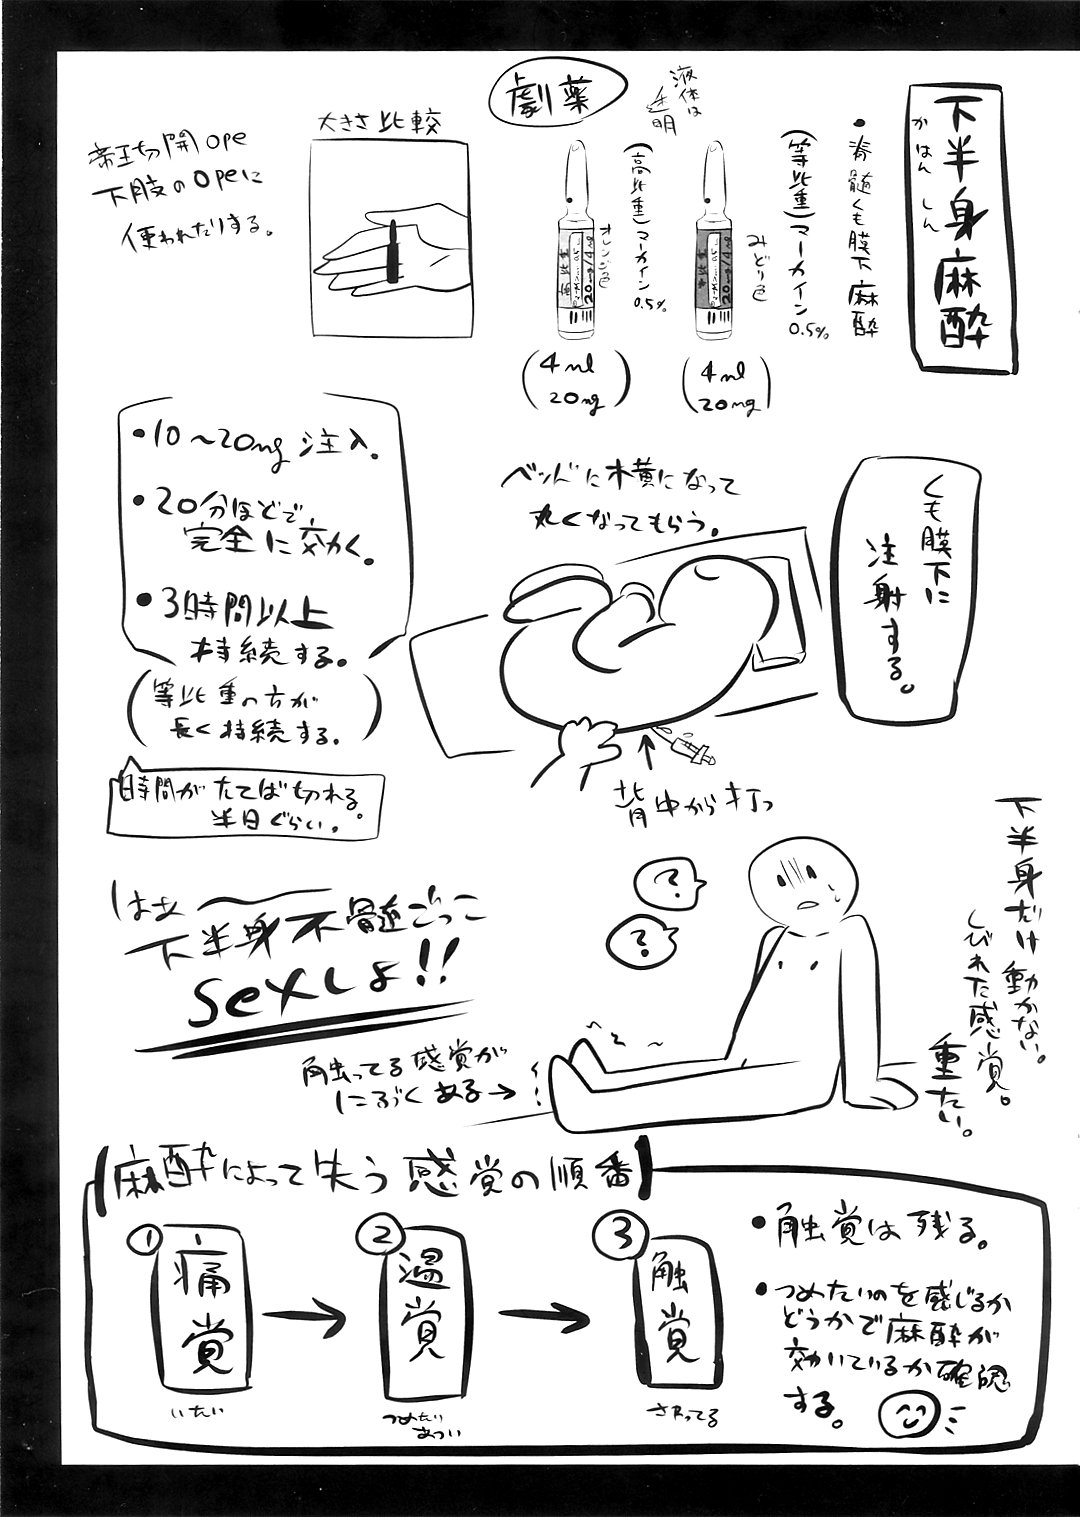 下半身麻酔
かはんしん
・脊髄くも膜下麻酔
(等比重)マーカイン0.5%
みどり色
液体は
透明
劇薬
(高比重)マーカイン0.5%
オレンジ色
20mg/4ml
20mg/4ml
(4ml
20mg)
(4ml
20mg)
大きさ比較
帝王切開ope
下肢のopeに
使われたりする。
くも膜下に
注射する。
ベッドに横になって
丸くなってもらう。
背中から打つ
・10〜20mg注入。
・20分ほどで
完全に効く。
・3時間以上
持続する。
(等比重の方が
長く持続する。)
時間がたてば切れる。
半日ぐらい。
下半身だけ動かない。
しびれた感覚。
重たい。
?
?
はぁ〜
下半身不髄ごっこ
sexしよ!!
触ってる感覚が
にぶくある→
麻酔によって失う感覚の順番
①痛覚
いたい
②温覚
つめたい
あつい
③触覚
さわってる
・触覚は残る。
・つめたいのを感じるか
どうかで麻酔が
効いているか確認
する。